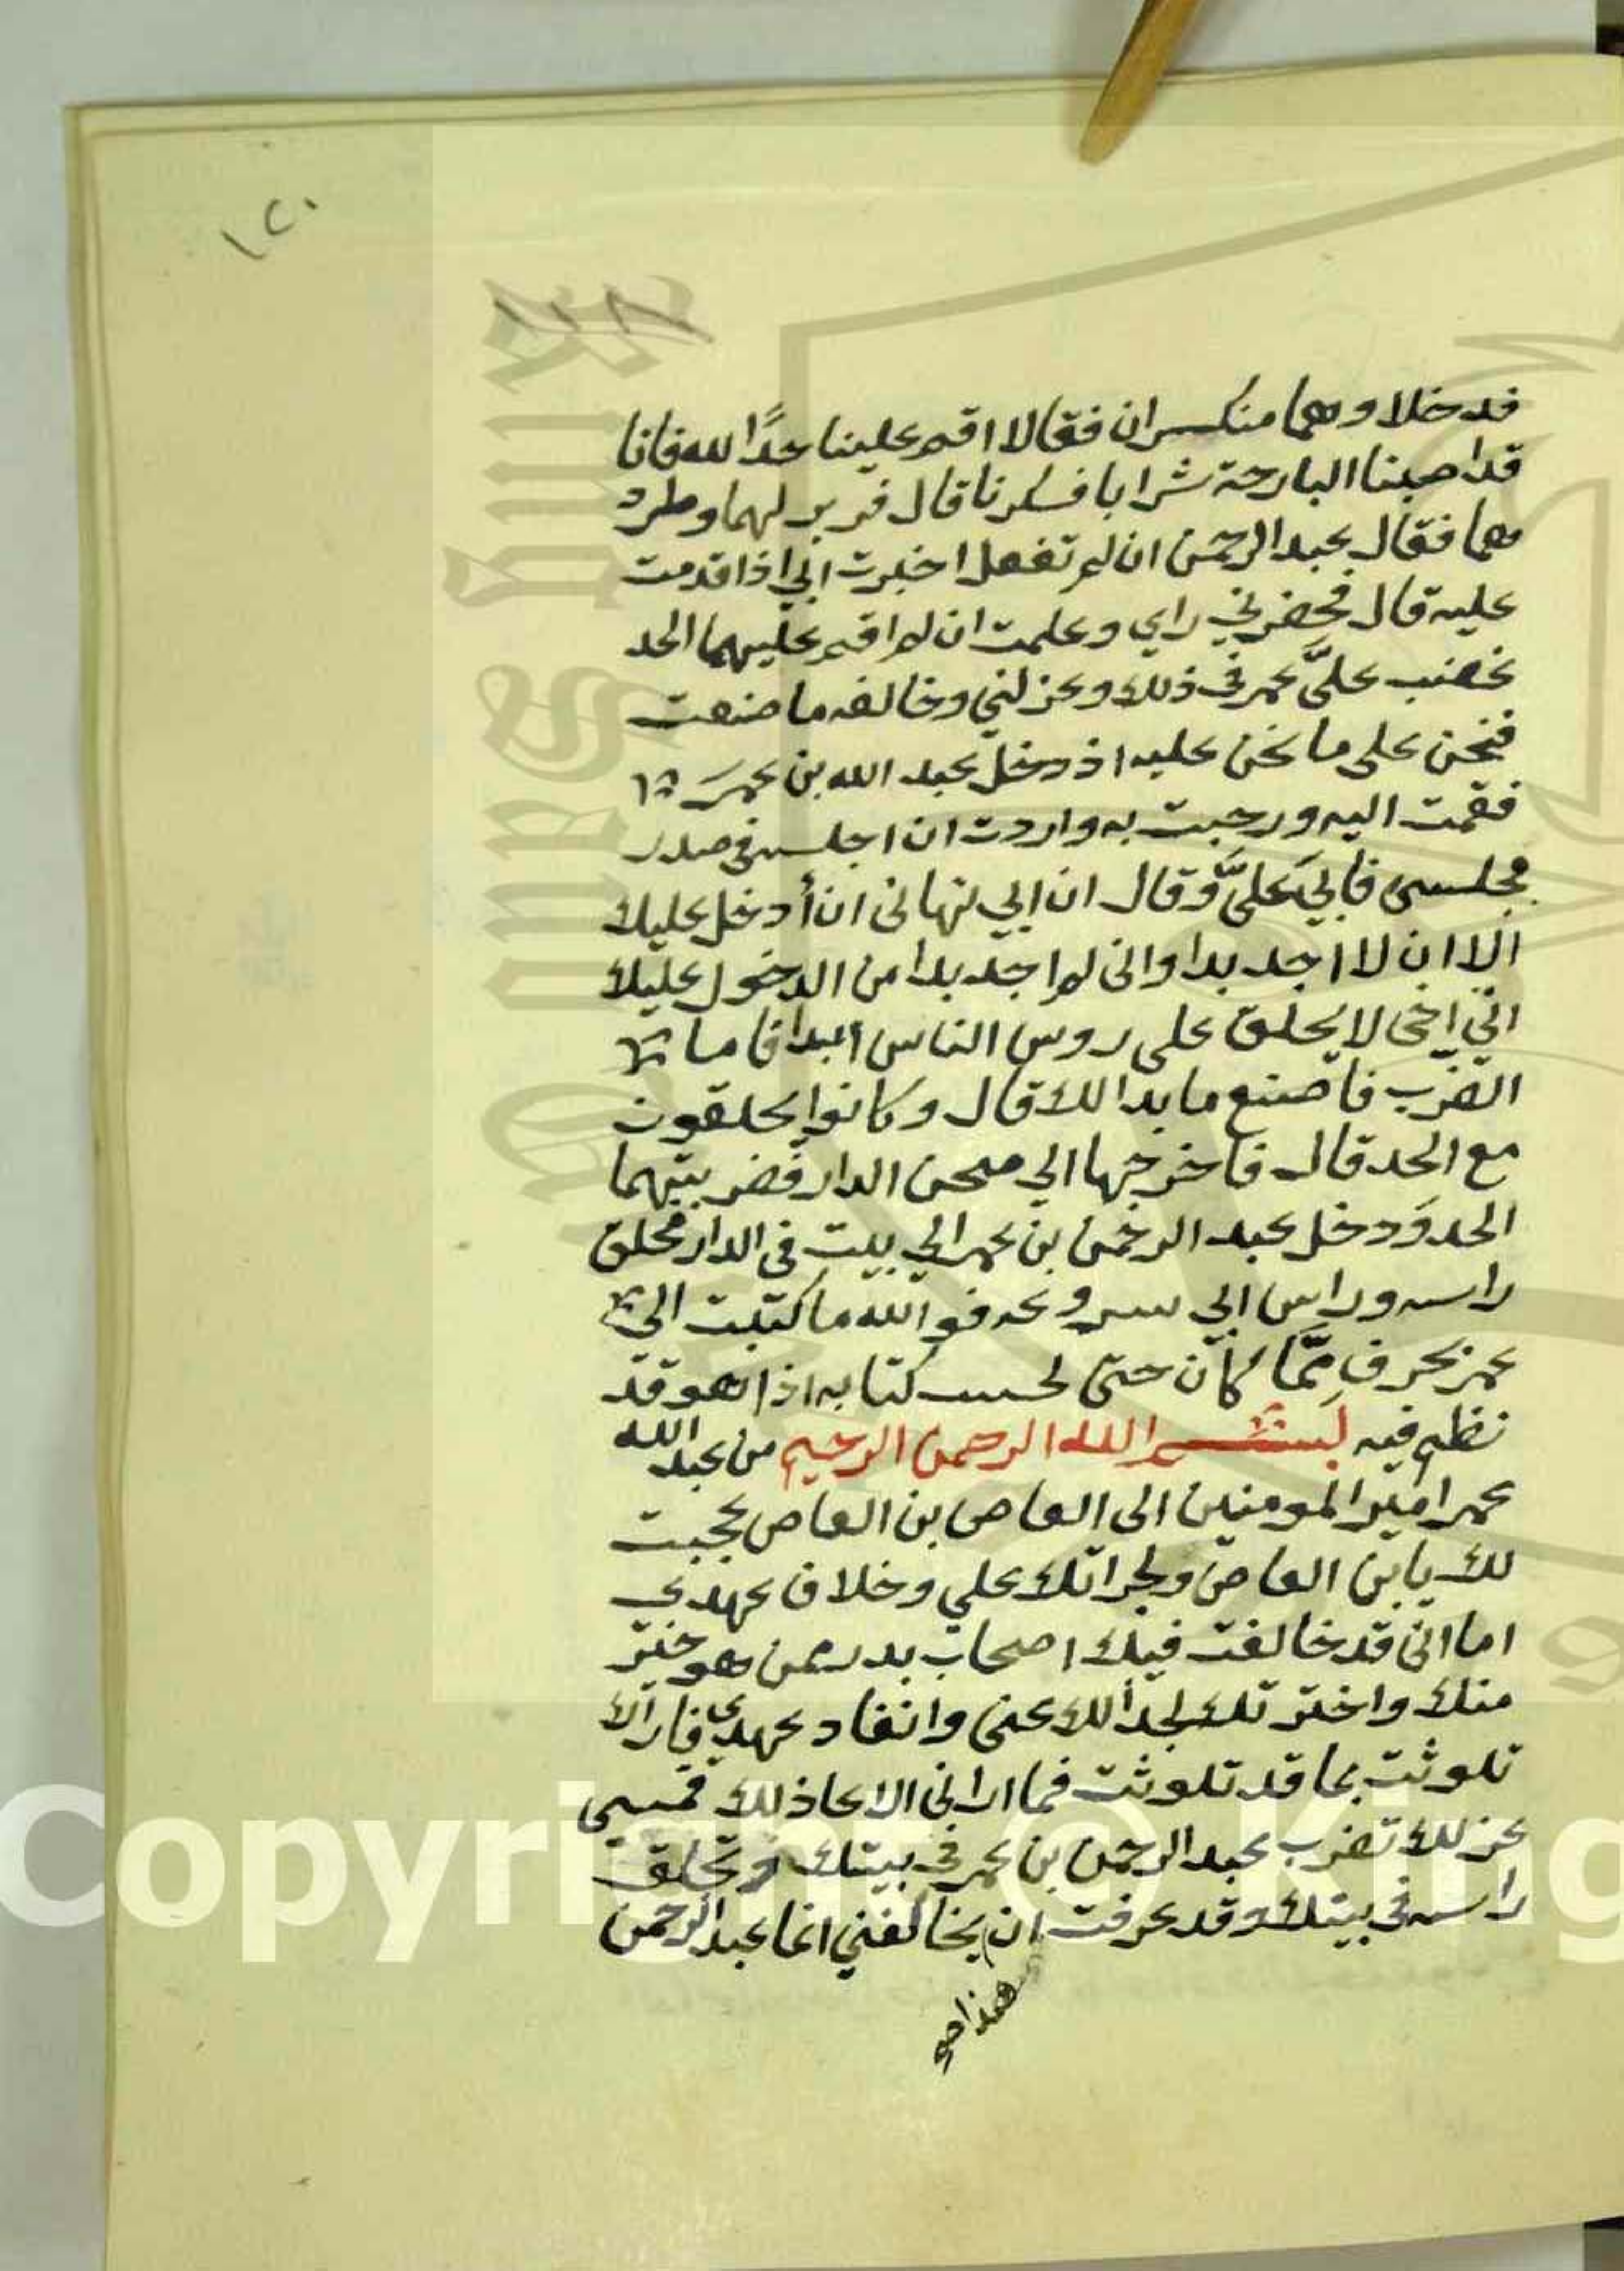 ١٢٠
١١٨
فدخلا وهما منكسران فقالا اقم علينا حدًا لله فانا
قد اصبنا البارحة شرابا فسكرنا قال فزبرلهما وطرد
هما فقال عبد الرحمن ان لم تفعل اخبرت ابي اذا قدمت
عليه قال فحضرني راي وعلمت ان لم اقم عليهما الحد
غضب عليَّ عمر في ذلك وعزلني وخالفه ما صنعت
فنحن على ما نحن عليه اذ دخل عبد الله بن عمر
فقمت اليه ورحبت به واردت ان اجلسه في صدر
مجلسي فابي عليَّ وقال ان ابي نهاني ان أدخل عليك
الا ان لا اجد بدا واني لم اجد بدا من الدخول عليك
اني اخي لا يحلق على روس الناس ابدا فاما
الضرب فاصنع ما بدا لك قال وكانوا يحلقون
مع الحد قال فاخرجتهما الي صحن الدار فضربتهما
الحد ودخل عبد الرحمن بن عمر الي بيت في الدار فحلق
راسه وراس ابي سروعه فوالله ما كتبت الي
عمر بحرف مِمَّا كان حتى كتابه اذا هو قد
نظم فيه بسم الله الرحمن الرحيم من عبد الله
عمر امير المومنين الى العاص بن العاص عجبت
لك يابن العاص ولجراتك علي وخلاف عهدي
اما اني قد خالفت فيك اصحاب بدر ممن هو خير
منك واخترتك لجدالك عني وانفاد عهدي فاراك
تلوثت بما قد تلوثت فما اراني الا عاذلك فمسي
عزلك تضرب عبد الرحمن بن عمر في بيتك وتحلق
راسه في بيتك وقد عرفت ان يخالفني انما عبد الرحمن
هذا
Copyright © King